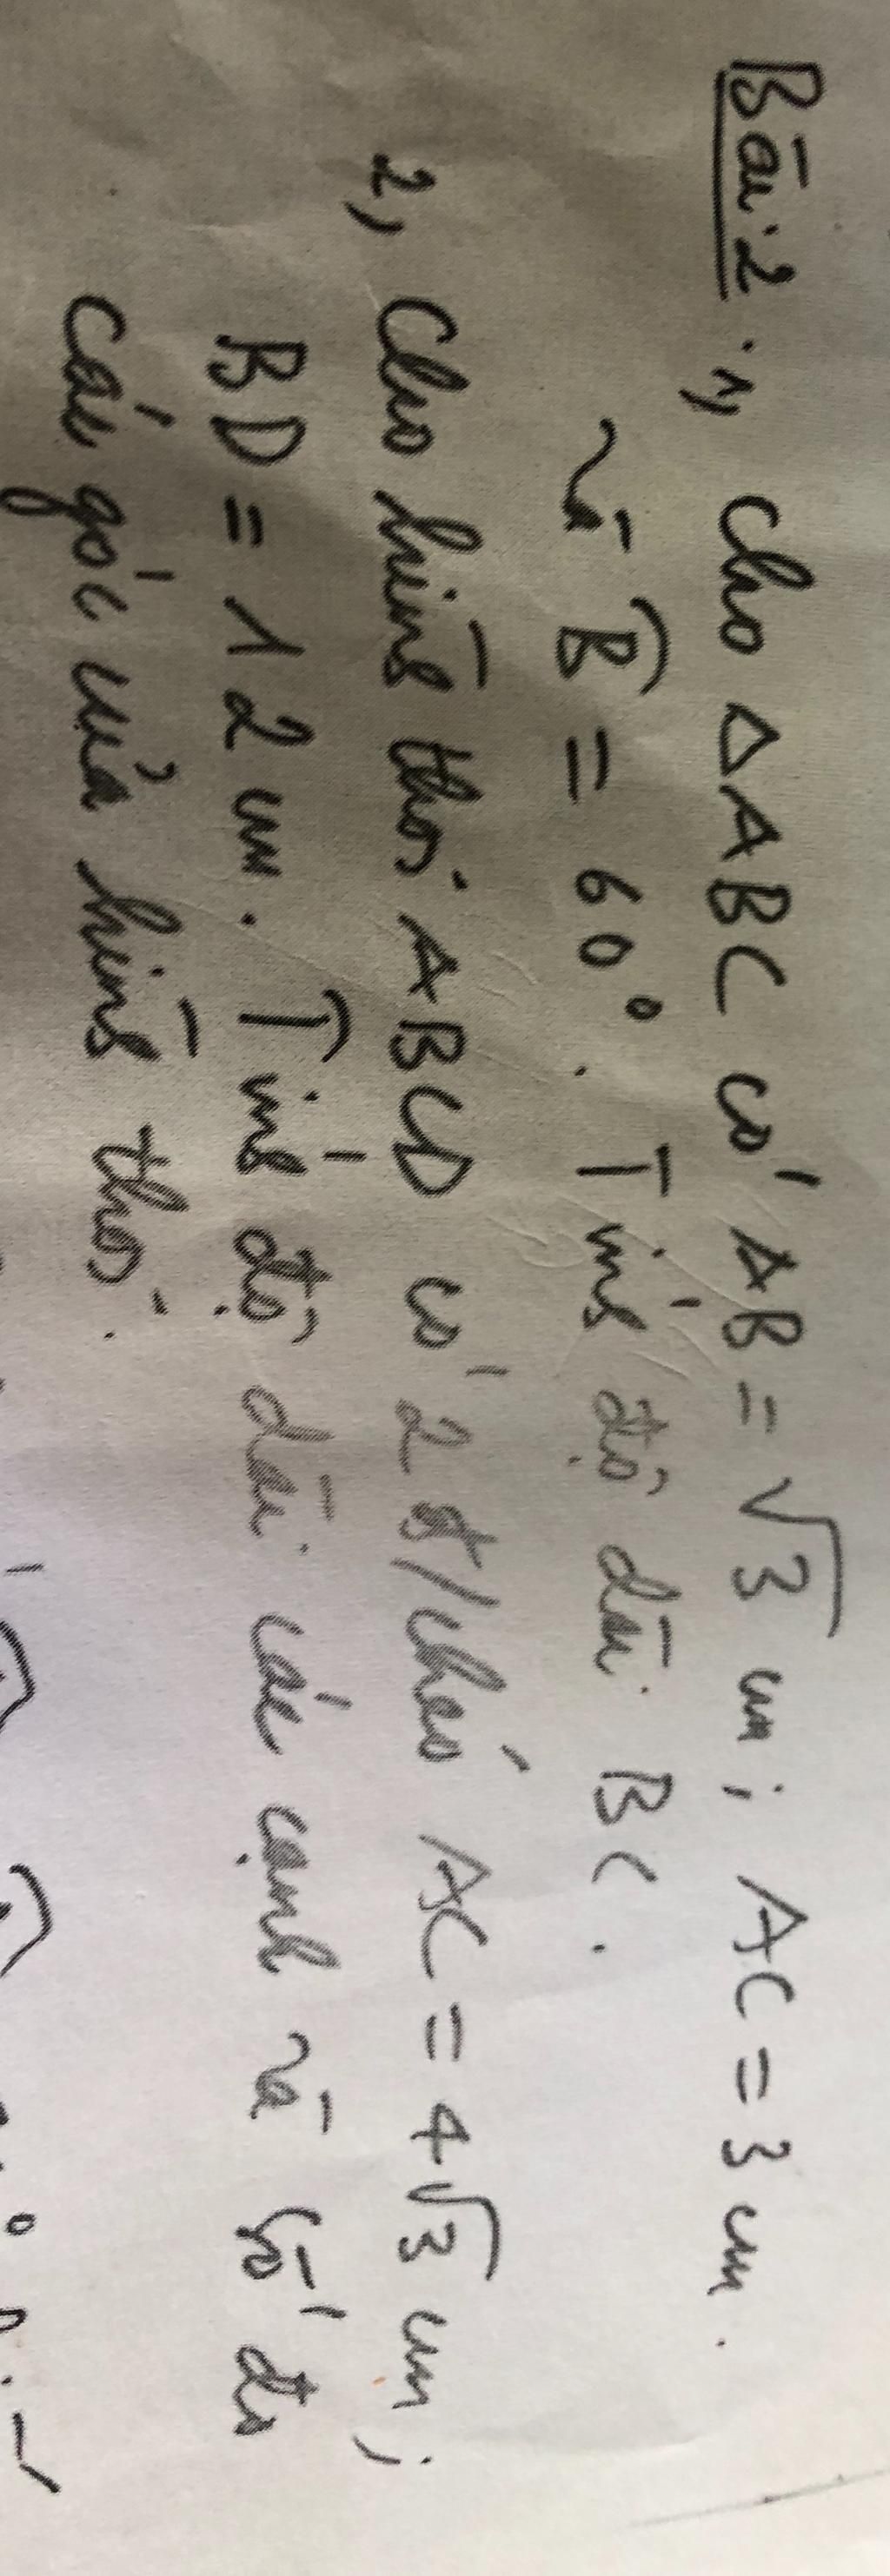 Bài 2: 1, Cho △ABC có AB = √3 cm; AC = 3 cm.
và B̂ = 60°. Tính độ dài BC.
2, Cho hình thoi ABCD có 2 đ/chéo AC = 4√3 cm;
BD = 12 cm. Tính độ dài các cạnh và số đo
các góc của hình thoi.